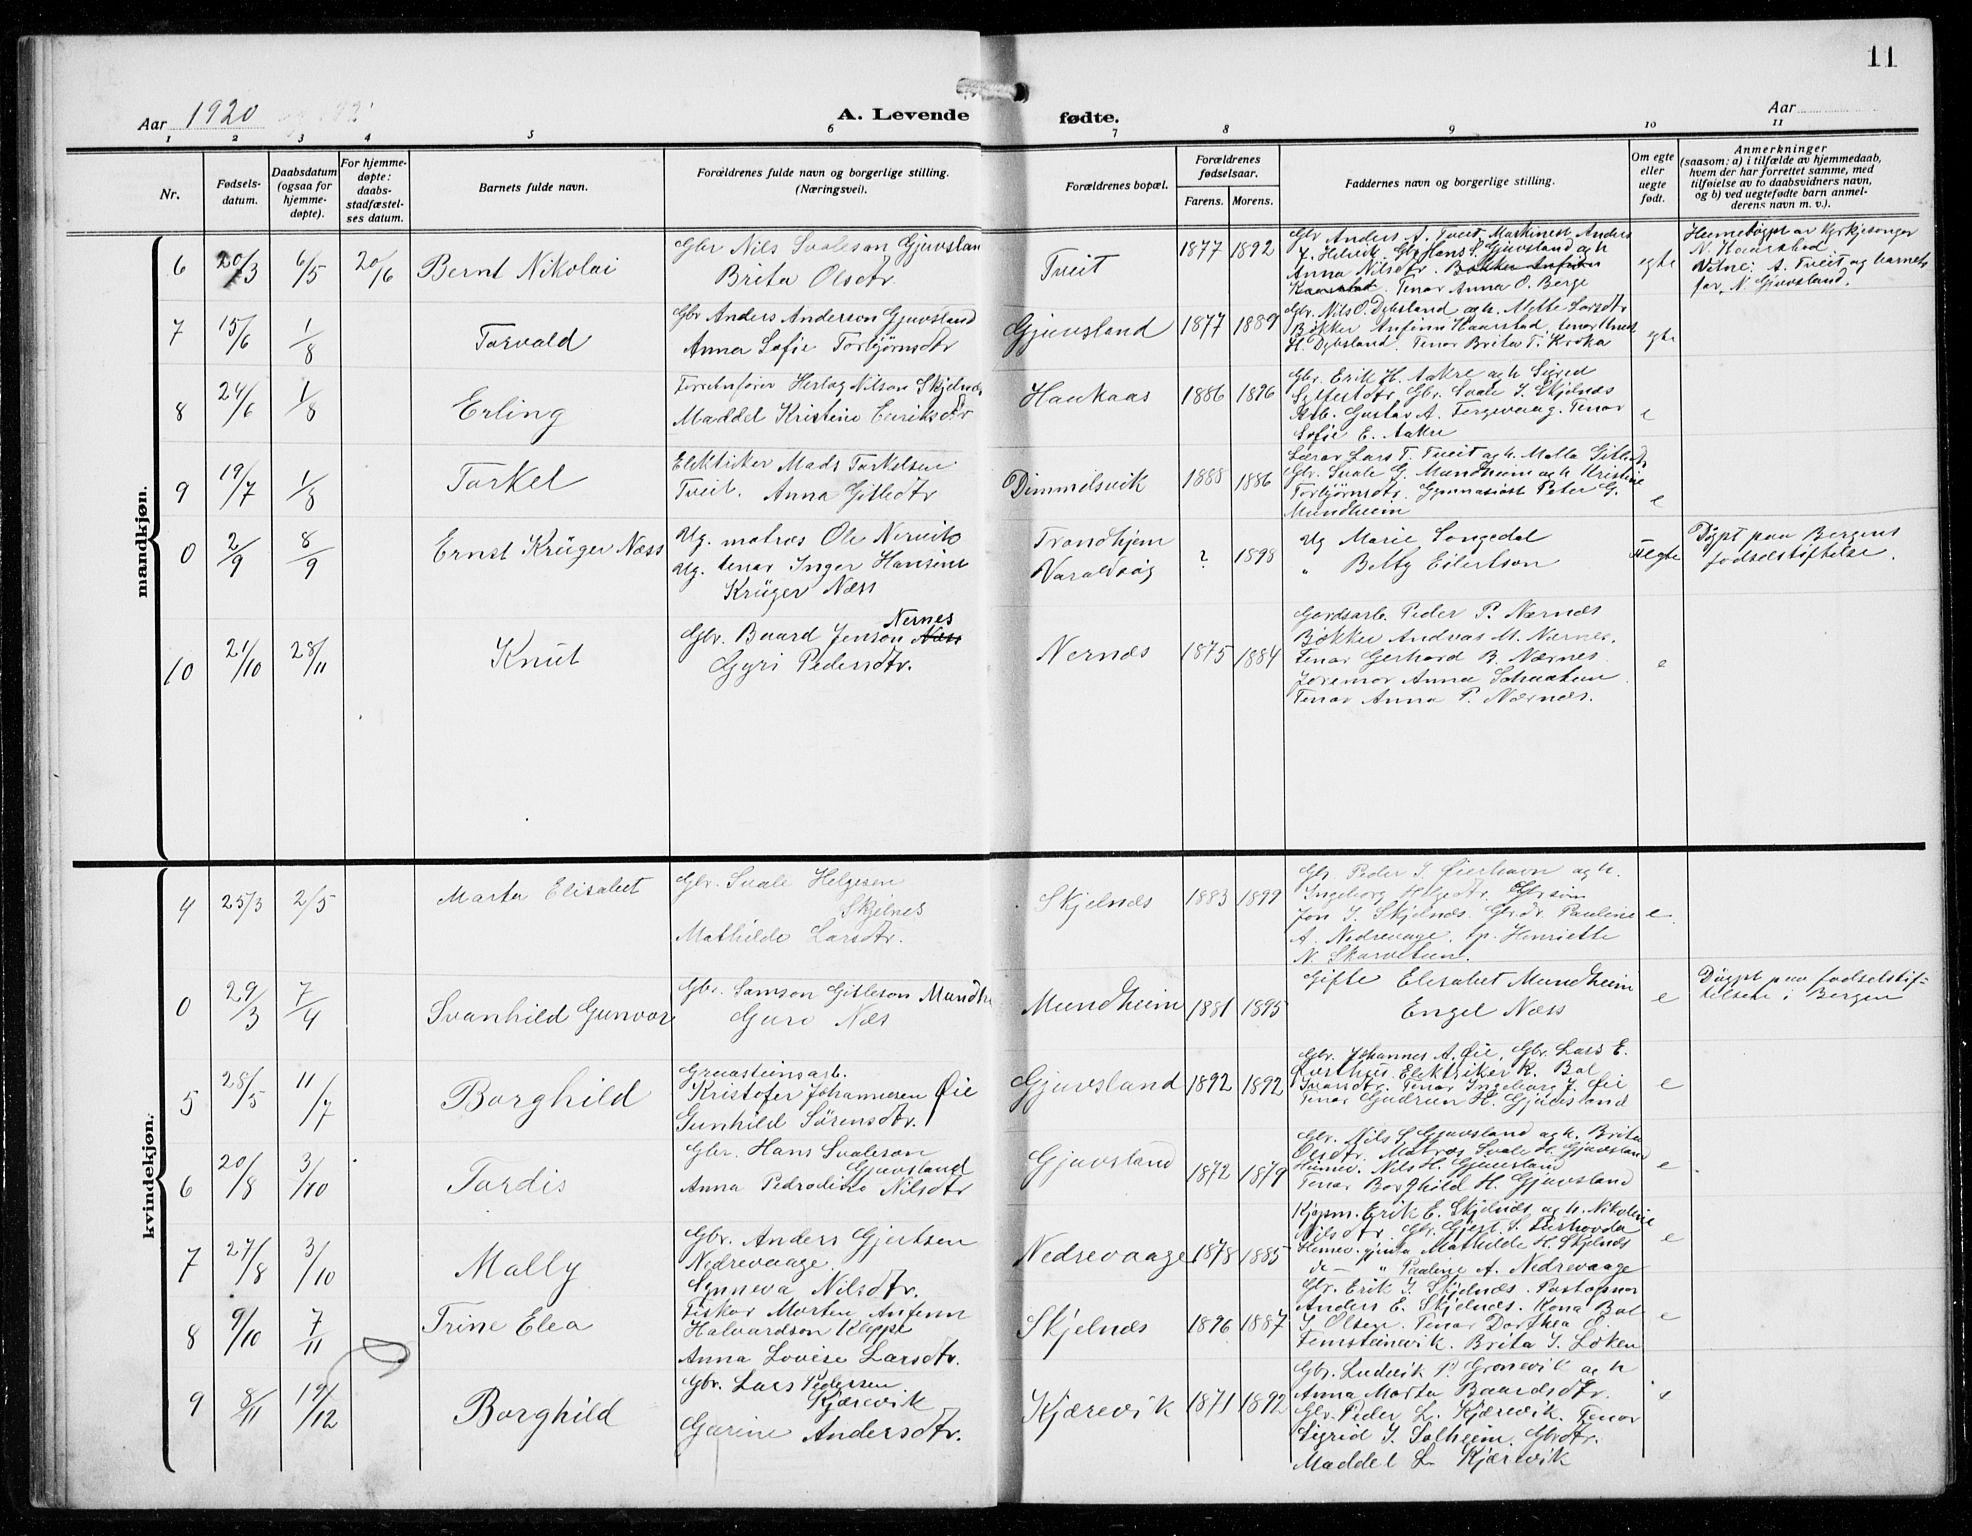 11
Aar 1920
A. Levende fødte.
Aar
1 2 3 4 5 6 7 8 9 10 11
Nr.
Fødsels-
datum.
Daabsdatum
(ogsaa for
hjemme-
døpte).
For hjemme-
døpte:
daabs-
stadfæstel-
ses datum.
Barnets fulde navn.
Forældrenes fulde navn og borgerlige stilling.
(Næringsvei).
Forældrenes bopæl.
Forældrenes
fødselsaar.
Farens. Morens.
Faddernes navn og borgerlige stilling.
Om egte
eller
uegte
født.
Anmerkninger
(saasom: a) i tilfælde av hjemmedaab,
hvem der har forrettet samme, med
tilføielse av to daabsvidners navn,
og b) ved uegtefødte barn anmel-
derens navn m. v.).
mandkjøn.
6 20/3 6/5 20/6 Bernt Nikolai
Gbr Nils Svaleson Gjuvsland
Brita Olsdtr.
Tveit 1877 1892
Gbr Anders A. Tveit Maskinist Anders
Gbr Hans S. Gjuvsland og h
Anna Nilsdtr.
Tenar Anna O. Berge
egte
Heimedøypt av Kyrkjesongar
N. Haarstad
Vitne: A. Tveit og barnets
far, N Gjuvsland.
7 15/6 1/8 Torvald
Gbr Anders Anderson Gjuvsland
Anna Sofie Torbjørnsdtr
Gjuvsland 1877 1889
Gbr. Nils O. Dybsland og h. Mette Larsdtr
Bøkker Anfinn Haarstad, tenar
H. Dybsland. Tenar Brita T. Kroka
egte
8 24/6 1/8 Erling
Forretnfører Herlog Nilson Skjelnes
Maddel Kristine Eriksdtr
Haukaas 1886 1896
Gbr. Erik H. Aakre og h Sigred
Sylfestdtr. Gbr. Svale I. Skjelnes
Arb. Gustav A. Fergevaag. Tenar
Sofie E. Aakre
e
9 19/7 1/8 Torkel
Elektriker Mads Torkelsen
Tveit. Anna Gitledtr
Dimmelsvik 1888 1886
Lærar Lars T. Tveit og h. Malla Gitledtr
Gbr. Svale G. Mundheim og h Kristine
Torbjørnsdtr. Gymnasiast Peter G.
Mundheim
e
0 2/9 8/9 Ernst Krüger Næss
Ug. matros Ole Nervik
Ug. tenar Inger Hansine
Krüger Næss
Trondhjem
Varaldsøy ? 1898
Ug Marie Songedal
" Betty Eilertson
Uegte
Døypt paa Bergens
fødselstiftelse.
10 21/10 28/11 Knut
Gbr. Baard Jenson Næss Nernes
Gyri Pedersdtr.
Nernes 1875 1884
Gardsarb. Peder P. Nærnes
Bøkker Andreas M. Nærnes.
Tenar Gerhard B. Nærnes
Jøremor Anna
Tenar Anna P. Nærnes.
e
kvindekjøn.
4 25/3 2/5 Marta Elisabet
Gbr. Svale Helgesen
Skjelnes
Mathilde Larsdtr.
Skjelnes 1883 1899
Gbr. Peder I. Øierhavn og h.
Ingeborg Helgedtr. Gbrsøn
Jon I. Skjelnes. Gbrdr. Pauline
A. Nedrevaage. tp. Henriette
N.
e
0 29/3 7/4 Svanhild Gunvor
Gbr. Samson Gitleson Mundh
Guro Næs
Mundheim 1881 1895
Gifte Elisabet Mundheim
Engel Næss
e
Døypt paa fødselstif-
telsen i Bergen
5 28/5 11/7 Borghild
Kristofer Johannesen Øie
Gunhild Sørensdtr.
Gjuvsland 1892 1892
Gbr. Johannes A. Øie, Gbr. Lars E.
Elektriker K. Bal
Tenar Ingeborg J. Øie
Tenar Gudrun H. Gjuvsland
e
6 20/8 3/10 Tordis
Gbr. Hans Svaleson
Gjuvsland
Anna Pedrodine Nilsdtr
Gjuvsland 1872 1879
Gbr. Nils S Gjuvsland og h. Brita
Olsdtr. Matros Svale H. Gjuvsland
Heimev. Nils H. Gjuvsland
Tenar Borghild H. Gjuvsland
e
7 27/8 3/10 Mally
Gbr. Anders Gjertsen
Nedrevaage.
Synneva Nilsdtr.
Nedrevaage 1878 1885
Kjøpm. Erik E. Skjelnes og h. Nikoline
Nilsdtr. Gbr. Gjert S.
Heimev. gjenta Mathilde H. Skjelnes
do — " Pauline A. Nedrevaage
e
8 9/10 7/11 Trine Elea
Fiskar Morten Anfinn
Halvardson Kleppe
Anna Lovise Larsdtr.
Skjelnes 1896 1887
Gbr. Erik I. Skjelnes. Postopnar
Anders E. Skjelnes. Kona Bal
I. Olsen. Tenar Dorthea O.
Femsteinevik. Brita I. Løken
e
9 8/11 19/12 Borghild
Gbr. Lars Pedersen
Kjærevik
Garine Andersdtr.
Kjærevik 1871 1892
Gbr. Ludvik P. Grønevik og h
Anna Marta Baardsdtr.
Gbr. Peder L. Kjærevik. Tenar
Sigrid J. Solheim. Gbrdtr.
Maddel L. Kjærevik
e